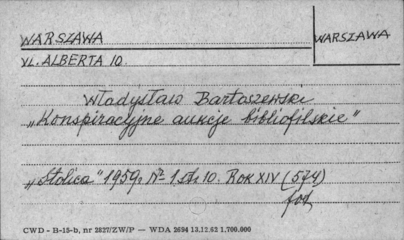 WARSZAWA
WARSZAWA
UL. ALBERTA 10.
Władysław Bartoszewski
„Konspiracyjne aukcje bibliofilskie"
„Stolica" 1959r. Nr 1. str. 10. ROK XIV (574)
fot.
CWD - B-15-b, nr 2827/ZW/P — WDA 2694 13.12.62 1.700.000